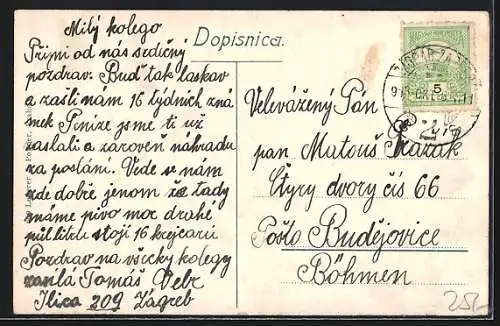 Dopisnica.
Milý kolego
Přijmi od nás srdečný
pozdrav. Buď tak laskav
a zašli nám 16 týdních zná
mek Peníze jsme ti už
zaslali a zároveň náhradu
za poslání. Vede se nám
zde dobře jenom že tady
máme pivo moc drahé
půl litru stojí 16 krejcarů
Pozdrav na všicky kolegy
zasílá Tomáš Vebr
Ilica 209 Zágreb
Velevážený Pán
pan Matouš Kazak
Čtyry dvory čís 66
Pošto Budějovice
Böhmen
5
25/-